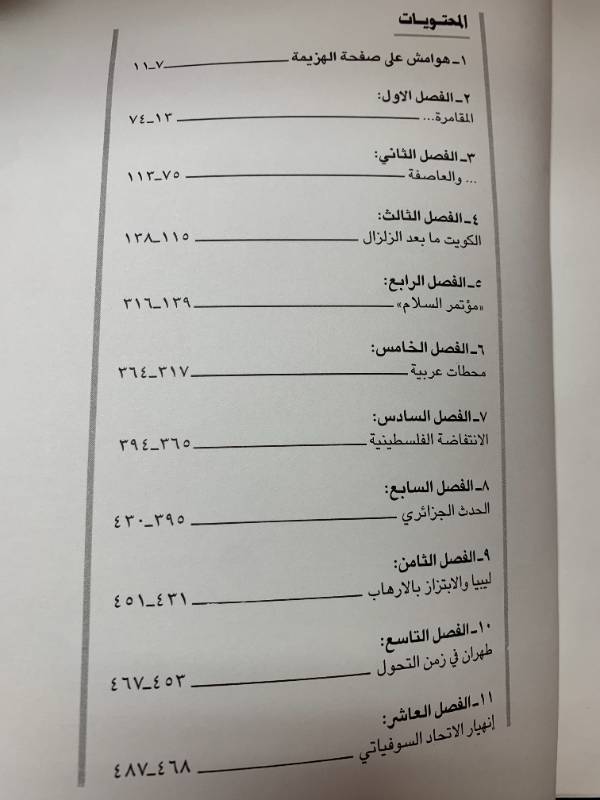 المحتويات
١ـ هوامش على صفحة الهزيمة ٧ـ١١
٢ـ الفصل الاول:
المقامرة... ١٣ـ٧٤
٣ـ الفصل الثاني:
... والعاصفة ٧٥ـ١١٣
٤ـ الفصل الثالث:
الكويت ما بعد الزلزال ١١٥ـ١٣٨
٥ـ الفصل الرابع:
«مؤتمر السلام» ١٣٩ـ٣١٦
٦ـ الفصل الخامس:
محطات عربية ٣١٧ـ٣٦٤
٧ـ الفصل السادس:
الانتفاضة الفلسطينية ٣٦٥ـ٣٩٤
٨ـ الفصل السابع:
الحدث الجزائري ٣٩٥ـ٤٣٠
٩ـ الفصل الثامن:
ليبيا والابتزاز بالارهاب ٤٣١ـ٤٥١
١٠ـ الفصل التاسع:
طهران في زمن التحول ٤٥٣ـ٤٦٧
١١ـ الفصل العاشر:
إنهيار الاتحاد السوفياتي ٤٦٨ـ٤٨٧